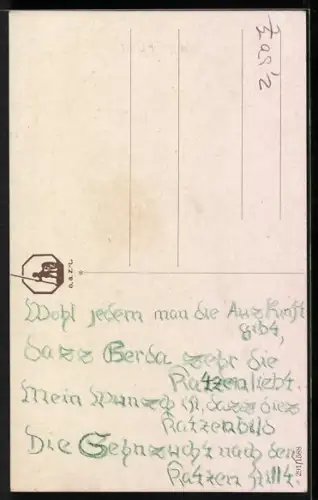 Wohl jedem man die Auskunft
gibt,
dass Gerda sehr die
Katzen liebt.
Mein Wunsch ist, dass dies
Katzenbild
Die Sehnsucht nach den
Katzen stillt
291/1088